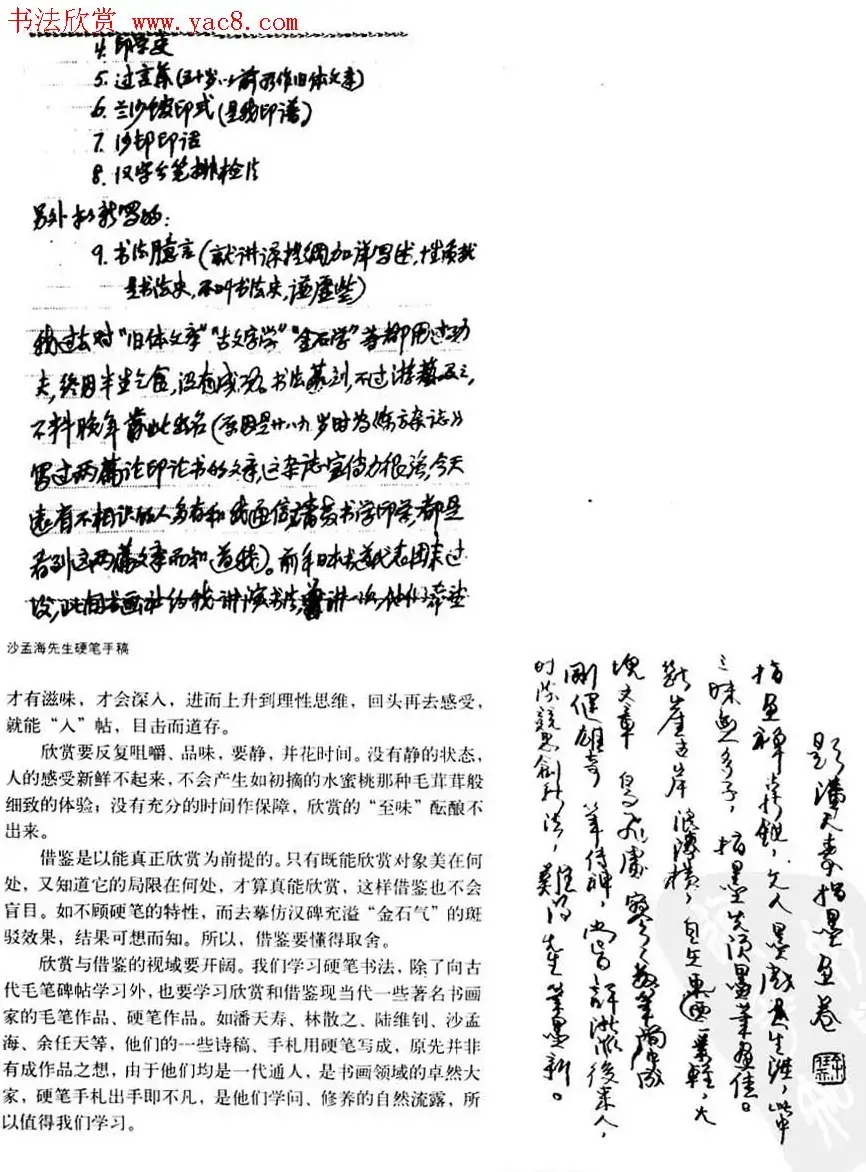 书法欣赏 www.yac8.com
4. 印学史
5. 过言集(五十岁以前所作旧体文章)
6. 兰沙馆印式(是我印谱)
7. 沙邨印话
8. 汉字分笔排检法
另外打算写的:
9. 书法臆言(就讲课提纲加详写述,性质就
是书法史,不叫书法史,谦虚些)
我过去对“旧体文章”“古文字学”“金石学”等都用过功
夫,
没有成就。书法篆刻,不过游艺及之,
不料晚年
出名(原因是廿八九岁时为《东方杂志》
写过两篇论印论书的文章,这杂志宣传力很强,今天
还有不相识的人多有和我通信请教书学印学,都是
看到这两篇文章而知道我)。前年日本书道代表团来过
讲一次,他们希望
沙孟海先生硬笔手稿
才有滋味,才会深入,进而上升到理性思维,回头再去感受,
就能“入”帖,目击而道存。
欣赏要反复咀嚼、品味,要静,并花时间。没有静的状态,
人的感受新鲜不起来,不会产生如初摘的水蜜桃那种毛茸茸般
细致的体验;没有充分的时间作保障,欣赏的“至味”酝酿不
出来。
借鉴是以能真正欣赏为前提的。只有既能欣赏对象美在何
处,又知道它的局限在何处,才算真能欣赏,这样借鉴也不会
盲目。如不顾硬笔的特性,而去摹仿汉碑充溢“金石气”的斑
驳效果,结果可想而知。所以,借鉴要懂得取舍。
欣赏与借鉴的视域要开阔。我们学习硬笔书法,除了向古
代毛笔碑帖学习外,也要学习欣赏和借鉴现当代一些著名书画
家的毛笔作品、硬笔作品。如潘天寿、林散之、陆维钊、沙孟
海、余任天等,他们的一些诗稿、手札用硬笔写成,原先并非
有成作品之想,由于他们均是一代通人,是书画领域的卓然大
家,硬笔手札出手即不凡,是他们学问、修养的自然流露,所
以值得我们学习。
题潘天寿指墨画卷
指画
三昧
指墨
断崖
块文章
刚健雄奇笔传神,
后来人,
时
创新法,难得先生笔墨新。